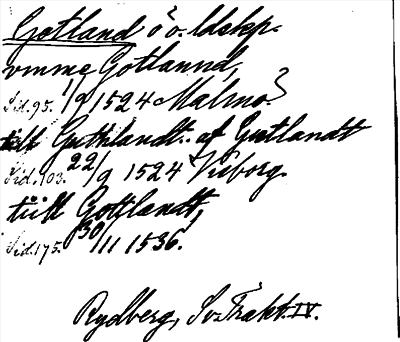 Gotland ö o. ldskp.
vmme Gotlannd,
Sid. 95. 1/9 1524 Malmö.
till Guthlandt. af Gutlandt
Sid. 103. 22/9 1524 Viborg.
tiill Gottlandt,
Sid. 175. 30/11 1536.
Rydberg, Sv. Trakt. IV.